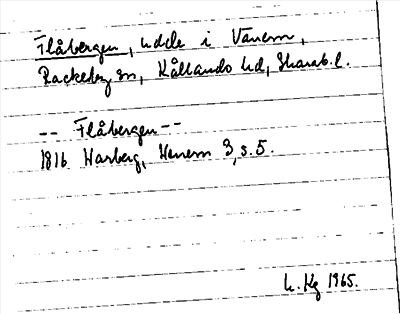 Flåbergen, udde i Vänern,
Rackeby sn, Kållands hd, Skarab. l.
-- Flåbergen --
1816 Harberg, Wenern 3, s. 5.
1965.